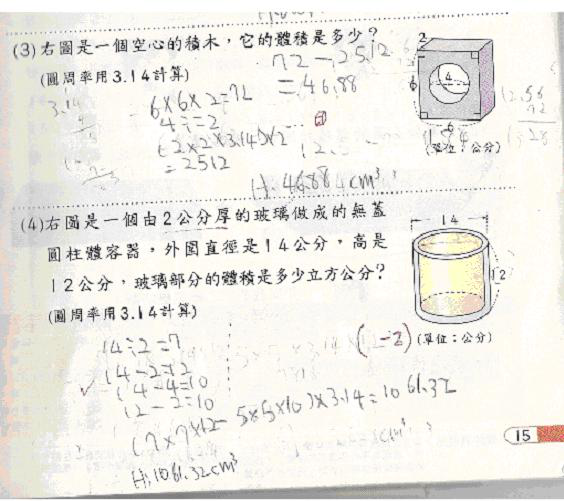 (3)右圖是一個空心的積木，它的體積是多少？
(圓周率用3.14計算)
72-25.12
=46.88
6×6×2=72
4÷2=2
(2×2×3.14)×2
=25.12
A:46.88cm³
2
4
6
6
(單位：公分)
(4)右圖是一個由2公分厚的玻璃做成的無蓋
圓柱體容器，外圍直徑是14公分，高是
12公分，玻璃部分的體積是多少立方公分？
(圓周率用3.14計算)
14
12
(-2)
(單位：公分)
14÷2=7
14-2=12
14-4=10
12-2=10
(7×7×12-5×5×10)×3.14=1061.32
A:1061.32cm³
15